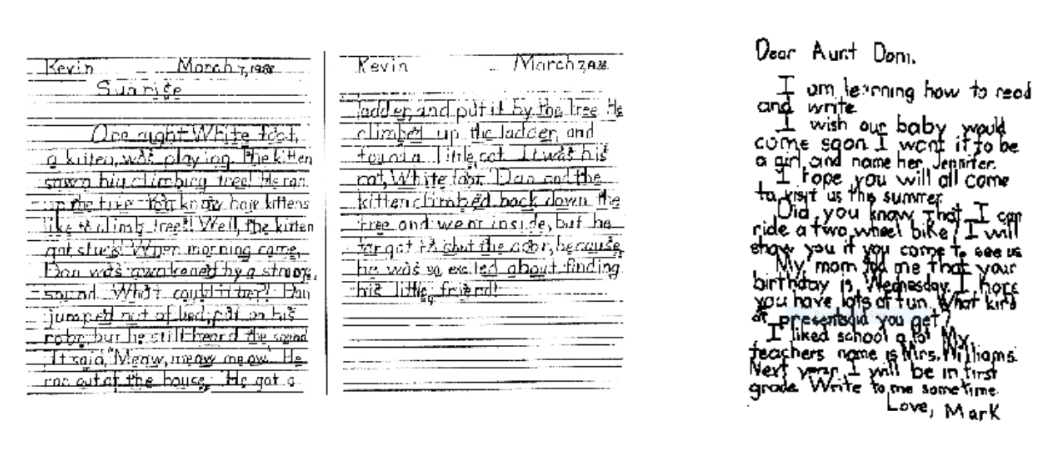 Kevin March 7, 1988
Sunrise
One night White foot,
a kitten, was playing. The kitten
sawn big climbing tree! He ran
up the tree. You know how kittens
like to climb trees! Well, the kitten
got stuck! When morning came,
Dan was awakened by a strong
sound. What could it be? Dan
jumped out of bed, put on his
robe, but he still heard the sound
It said, "Meow, meow meow. He
ran out of the house. He got a
Kevin March 7, 1988
ladder, and put it by the tree He
climbed up the ladder, and
found a little cat. It was his
cat, White foot. Dan and the
kitten climbed back down the
tree and went inside, but he
forgot to shut the door, because
he was so excited about finding
his little friend!
Dear Aunt Doni,
I am learning how to read
and write
I wish our baby would
come soon I want it to be
a girl, and name her Jennifer.
I hope you will all come
to visit us this summer
Did you know that I can
ride a two wheel bike? I will
show you if you come to see us
My mom told me that your
birthday is Wednesday. I hope
you have lots of fun. What kind
of presents did you get?
I liked school a lot My
teachers name is Mrs. Williams.
Next year I will be in first
grade. Write to me sometime.
Love, Mark